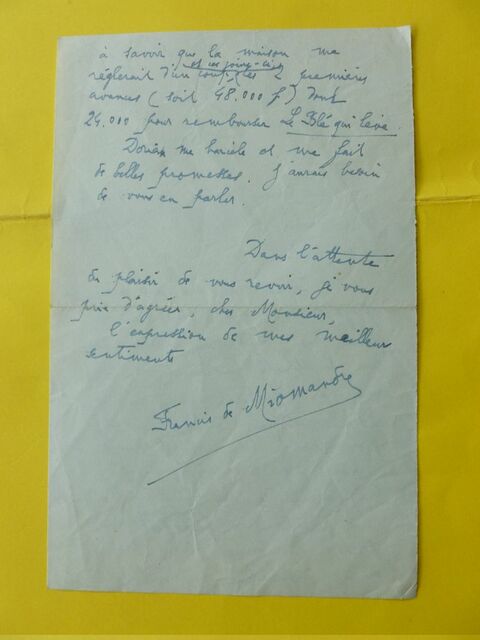 à savoir que la maison me
et ces jours-ci
réglerait d'un coup, les 2 premières
avances (soit 48.000 f) dont
24.000 pour rembourser Le Blé qui lève.
me harcèle et me fait
de belles promesses. J'aurais besoin
de vous en parler.
Dans l'attente
du plaisir de vous revoir, je vous
prie d'agréer, cher Monsieur,
l'expression de mes meilleurs
sentiments
Francis de Miomandre